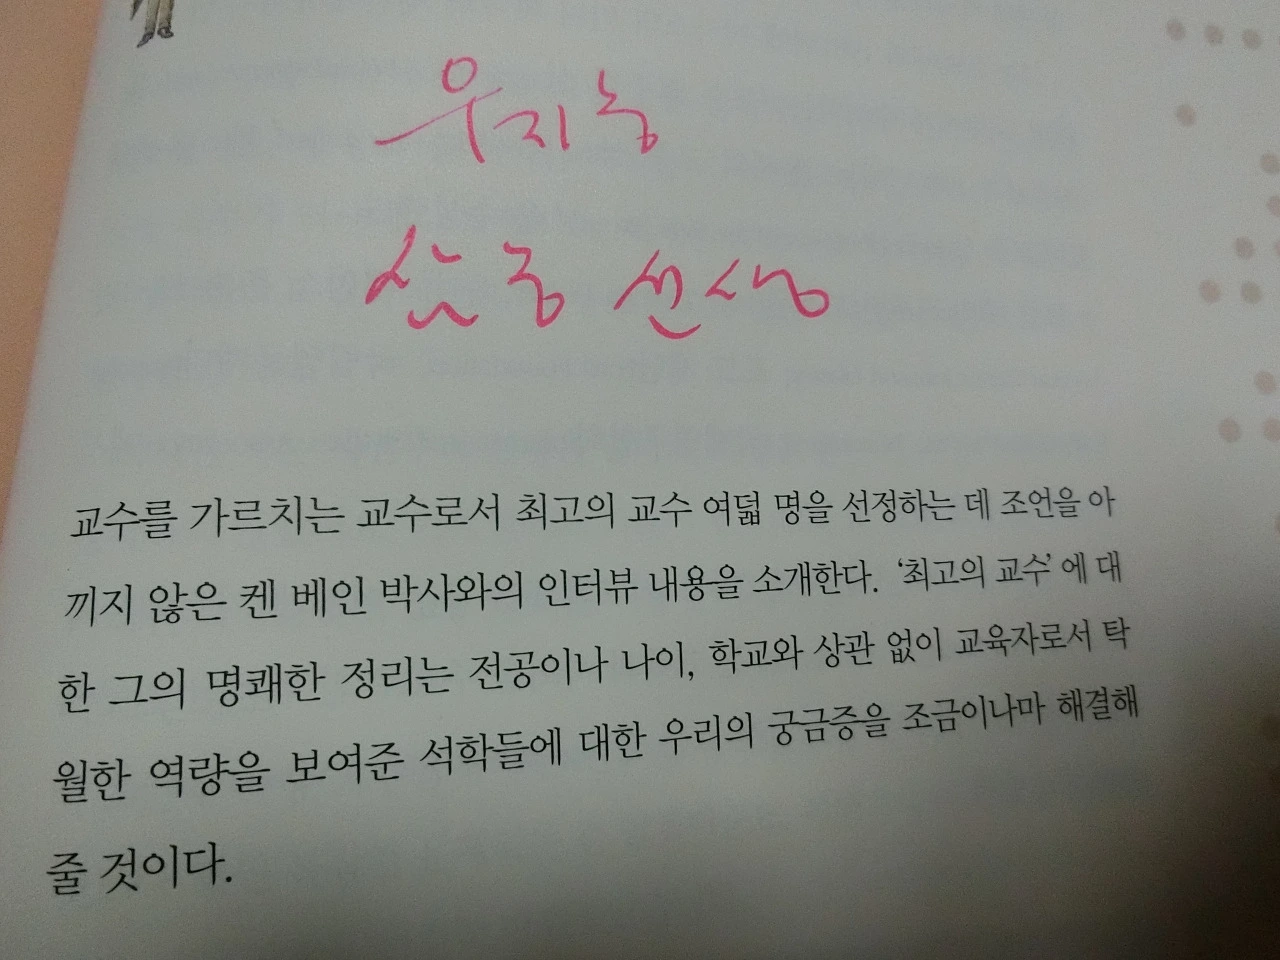 우지농
삼농 선생
교수를 가르치는 교수로서 최고의 교수 여덟 명을 선정하는 데 조언을 아
끼지 않은 켄 베인 박사와의 인터뷰 내용을 소개한다. ‘최고의 교수’에 대
한 그의 명쾌한 정리는 전공이나 나이, 학교와 상관 없이 교육자로서 탁
월한 역량을 보여준 석학들에 대한 우리의 궁금증을 조금이나마 해결해
줄 것이다.